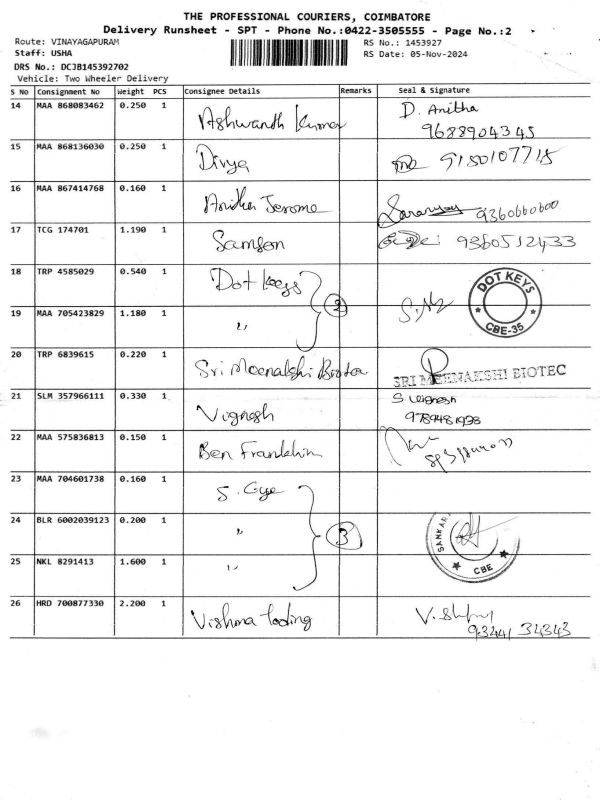 THE PROFESSIONAL COURIERS, COIMBATORE
Delivery Runsheet - SPT - Phone No.:0422-3505555 - Page No.:2
Route: VINAYAGAPURAM RS No.: 1453927
Staff: USHA RS Date: 05-Nov-2024
DRS No.: DCJB145392702
Vehicle: Two Wheeler Delivery
S No Consignment No Weight PCS Consignee Details Remarks Seal & Signature
14 MAA 868083462 0.250 1 Ashwanth Kumar D. Anitha
9688904345
15 MAA 868136030 0.250 1 Divya 9150107715
16 MAA 867414768 0.160 1 Jerome Saranya 9360660600
17 TCG 174701 1.190 1 Samson 9360512433
18 TRP 4585029 0.540 1 Dot Keys DOT KEYS CBE-35
19 MAA 705423829 1.180 1 " 2
20 TRP 6839615 0.220 1 Sri Meenakshi Biotec SRI MEENAKSHI BIOTEC
21 SLM 357966111 0.330 1 Vignesh S Vignesh
9789481938
22 MAA 575836813 0.150 1 Ben Franklin
23 MAA 704601738 0.160 1 S. Gye
24 BLR 6002039123 0.200 1 " 3 SANKARA CBE
25 NKL 8291413 1.600 1 "
26 HRD 700877330 2.200 1 Vishma
93441 34343